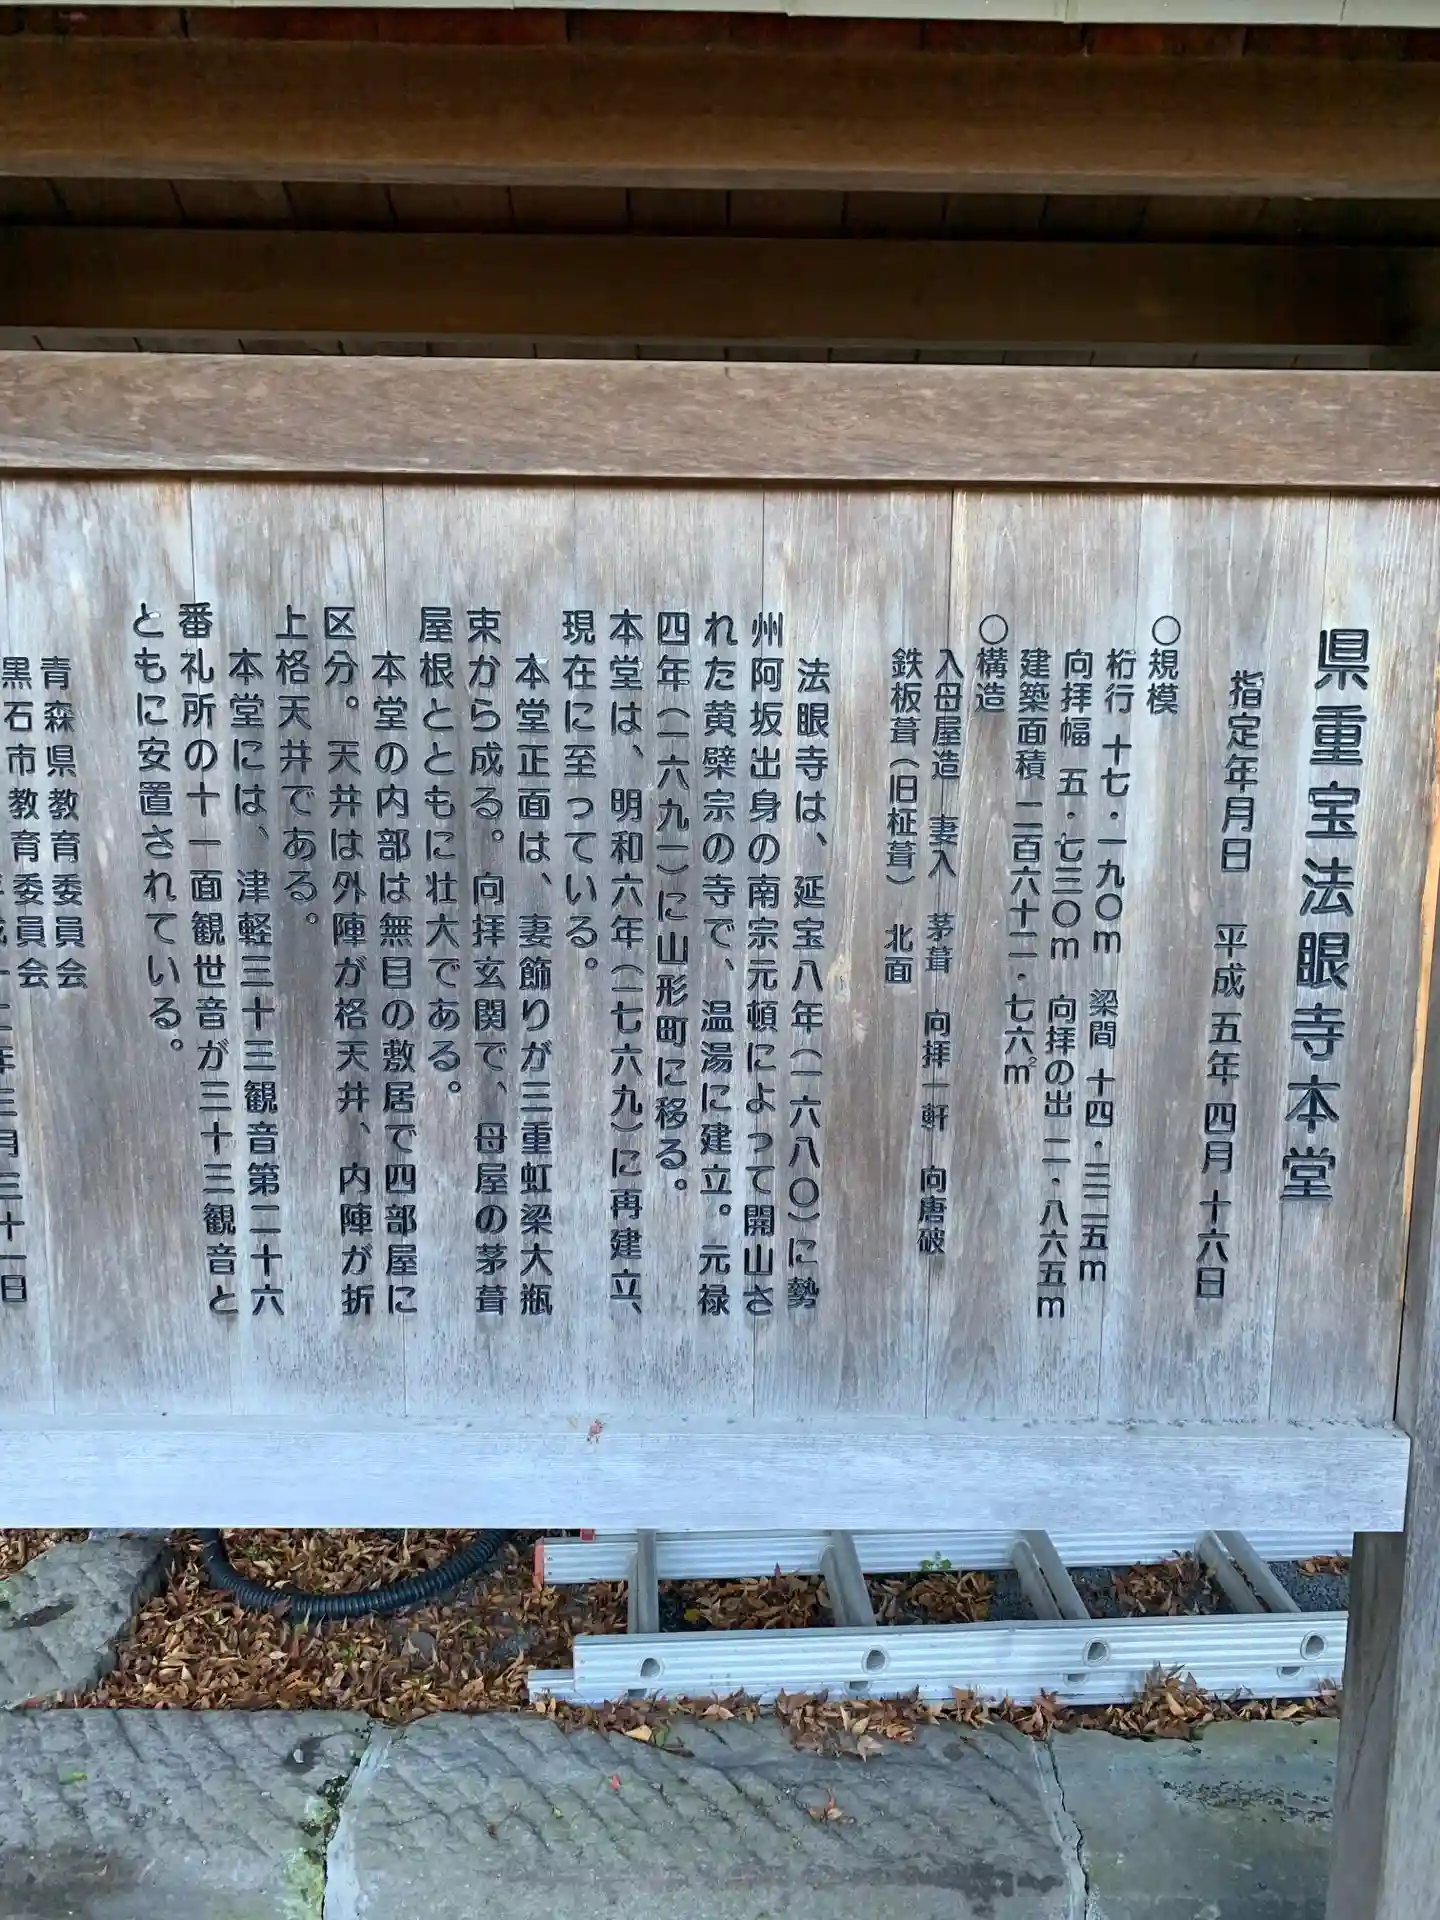 県重宝法眼寺本堂
指定年月日 平成五年四月十六日
〇規模
桁行 十七・一九〇m 梁間 十四・三二五m
向拝幅 五・七三〇m 向拝の出 二・八六五m
建築面積 二百六十二・七六㎡
〇構造
入母屋造 妻入 茅葺 向拝一軒 向唐破
鉄板葺(旧柾葺) 北面
法眼寺は、延宝八年(一六八〇)に勢
州阿坂出身の南宗元頓によって開山さ
れた黄檗宗の寺で、温湯に建立。元禄
四年(一六九一)に山形町に移る。
本堂は、明和六年(一七六九)に再建立、
現在に至っている。
本堂正面は、妻飾りが三重虹梁大瓶
束から成る。向拝玄関で、母屋の茅葺
屋根とともに壮大である。
本堂の内部は無目の敷居で四部屋に
区分。天井は外陣が格天井、内陣が折
上格天井である。
本堂には、津軽三十三観音第二十六
番礼所の十一面観世音が三十三観音と
ともに安置されている。
青森県教育委員会
黒石市教育委員会
二年三月三十一日